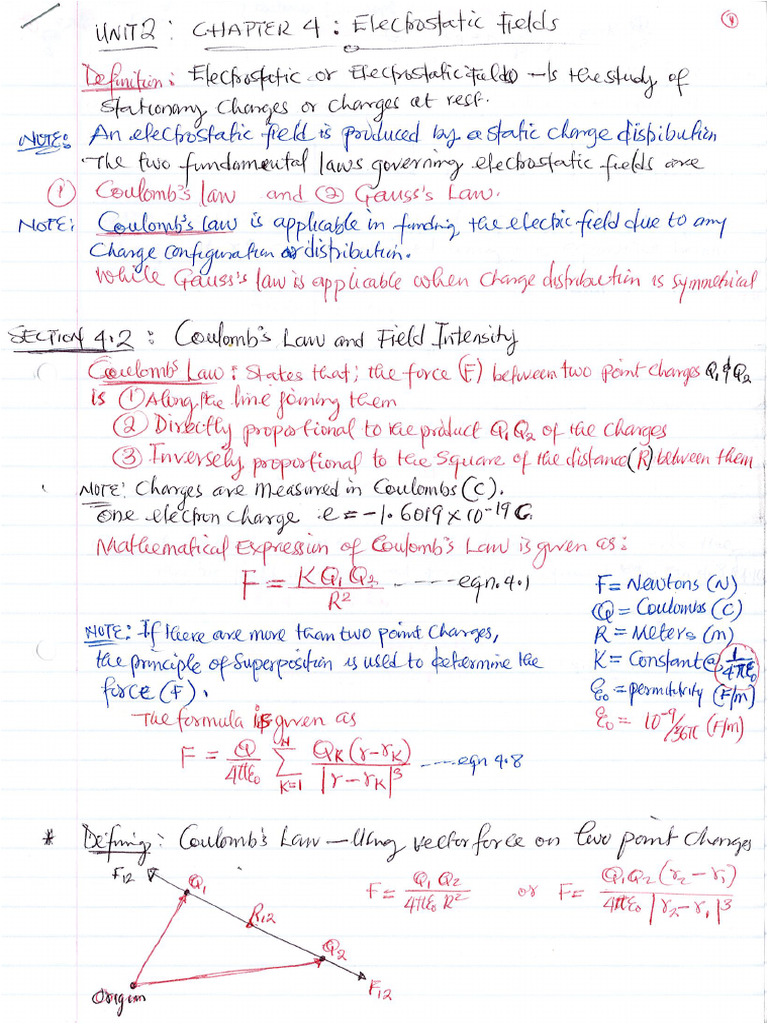 UNIT 2 : CHAPTER 4 : Electrostatic Fields
①
Definition: Electrostatic or Electrostatic Fields — Is the study of
stationary charges or charges at rest.
NOTE: An electrostatic field is produced by a static charge distribution
The two fundamental laws governing electrostatic fields are
① Coulomb's law and ② Gauss's Law.
NOTE: Coulomb's law is applicable in finding the electric field due to any
charge configuration or distribution.
while Gauss's law is applicable when charge distribution is symmetrical
SECTION 4.2 : Coulomb's Law and Field Intensity
Coulomb's Law: States that; the force (F) between two point charges Q₁ & Q₂
is ① Along the line joining them
② Directly proportional to the product Q₁Q₂ of the charges
③ Inversely proportional to the square of the distance (R) between them
NOTE: Charges are measured in Coulombs (C).
One electron charge e = -1.6019 x 10⁻¹⁹ C
Mathematical Expression of Coulomb's Law is given as:
F = K Q₁ Q₂ / R² ------ eqn. 4.1
F = Newtons (N)
Q = Coulombs (C)
R = Meters (m)
K = Constant @ 1/4πε₀
ε₀ = permittivity (F/m)
ε₀ = 10⁻⁹/36π (F/m)
NOTE: If there are more than two point charges,
the principle of Superposition is used to determine the
force (F).
The formula is given as
F = Q/4πε₀ N∑K=1 Q_K (r - r_K) / |r - r_K|³ ----- eqn 4.8
* Defining: Coulomb's Law — Using vector force on two point charges
F₁₂ Q₁
F = Q₁ Q₂ / 4πε₀ R² or F = Q₁Q₂ (r₂ - r₁) / 4πε₀ |r₂ - r₁|³
R₁₂
Q₂
F₁₂
Origin